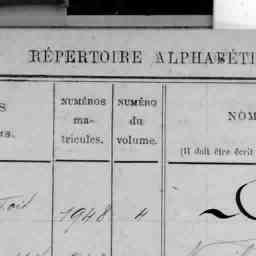 RÉPERTOIRE ALPHABÉTI
S NUMÉROS NUMÉRO NOM
ma- du
s. tricules. volume. (Il doit être écrit
1948 4